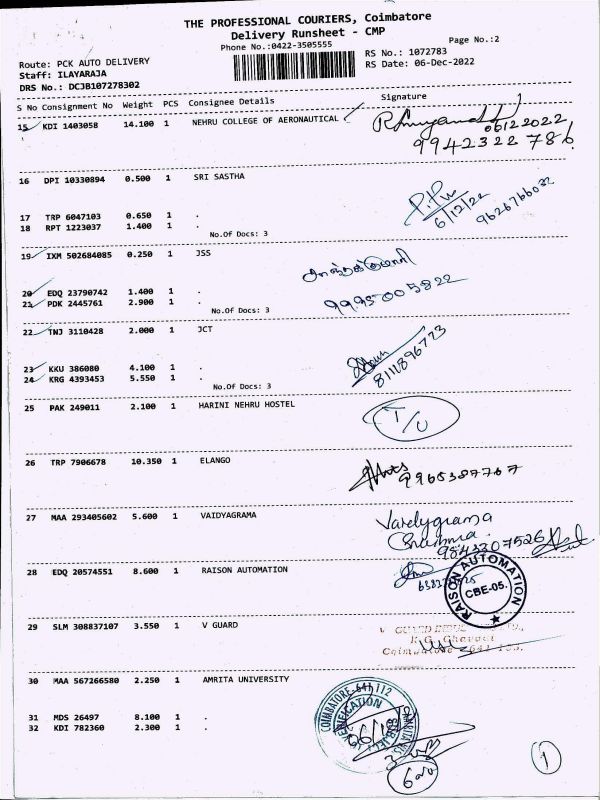 THE PROFESSIONAL COURIERS, Coimbatore
Delivery Runsheet - CMP
Phone No.:0422-3505555
Page No.:2
Route: PCK AUTO DELIVERY
RS No.: 1072783
Staff: ILAYARAJA
RS Date: 06-Dec-2022
DRS No.: DCJB107278302
S No Consignment No Weight PCS Consignee Details Signature
15 KDI 1403058 14.100 1 NEHRU COLLEGE OF AERONAUTICAL
06122022
9942322 786
16 DPI 10330894 0.500 1 SRI SASTHA
6/12/22
9626766032
17 TRP 6047103 0.650 1 .
18 RPT 1223037 1.400 1 .
No.Of Docs: 3
19 IXM 502684085 0.250 1 JSS
20 EDQ 23790742 1.400 1 .
9995005822
21 PDK 2445761 2.900 1 .
No.Of Docs: 3
22 TNJ 3110428 2.000 1 JCT
8111896773
23 KKU 386080 4.100 1 .
24 KRG 4393453 5.550 1 .
No.Of Docs: 3
25 PAK 249011 2.100 1 HARINI NEHRU HOSTEL
T/U
26 TRP 7906678 10.350 1 ELANGO
9965387767
27 MAA 293405602 5.600 1 VAIDYAGRAMA
9843307526
28 EDQ 20574551 8.600 1 RAISON AUTOMATION
RAISON AUTOMATION
CBE-05.
29 SLM 308837107 3.550 1 V GUARD
Coimbatore - 641 105.
30 MAA 567266580 2.250 1 AMRITA UNIVERSITY
COIMBATORE-641 112
31 MDS 26497 8.100 1 .
32 KDI 782360 2.300 1 .
1